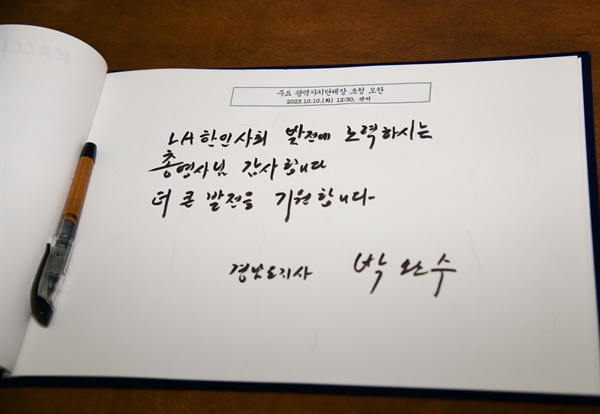 주요 광역자치단체장 초청 오찬
2023.10.10.(화) 12:30, 관저
LA한인사회 발전에 노력하시는
총영사님 감사합니다
더 큰 발전을 기원합니다-
경남도지사 박완수